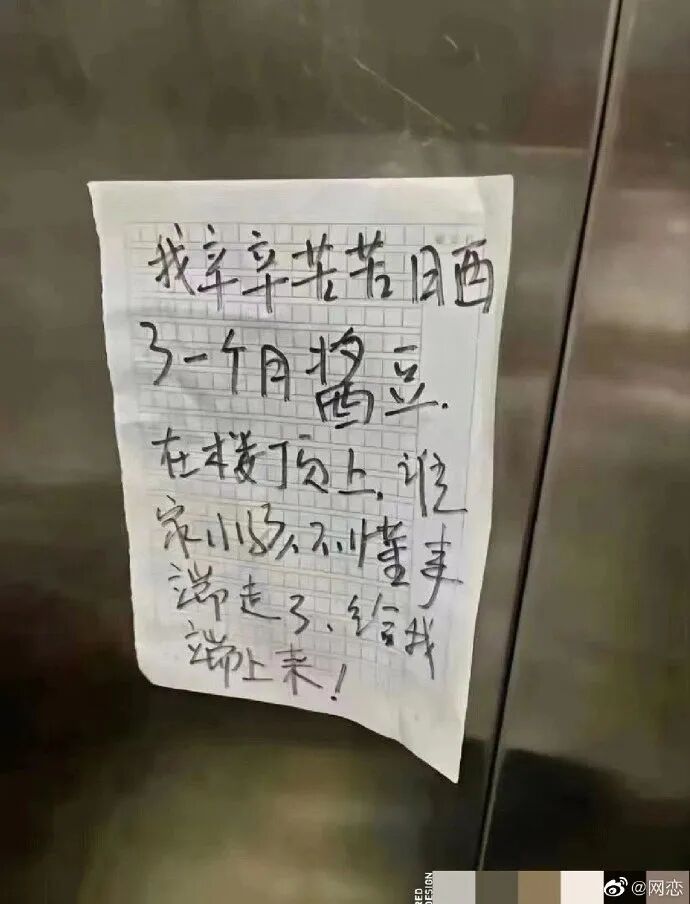 我辛辛苦苦晒
了一个月酱豆.
在楼顶上,谁
家小孩不懂事
端走了、给我
端上来!
DESIGN
@网恋